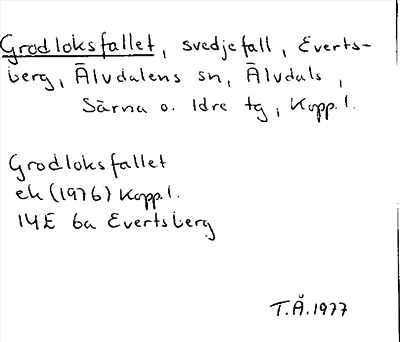 Grodloksfallet, svedjefall, Everts-
berg, Älvdalens sn, Älvdals,
Särna o. Idre tg, Kopp.l.
Grodloksfallet
ek (1976) Kopp.l.
14E 6a Evertsberg
T.Å.1977